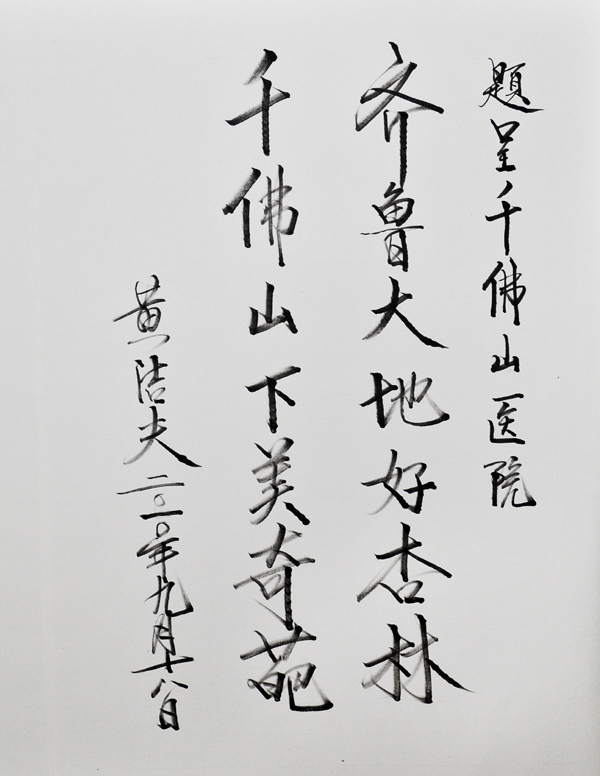 题呈千佛山医院
齐鲁大地好杏林
千佛山下美奇葩
黄洁夫二〇一〇年九月十八日